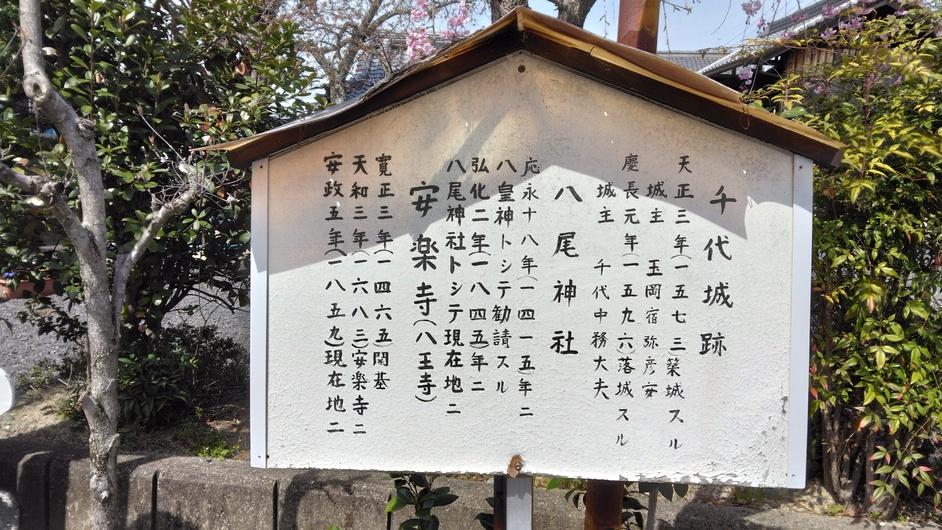 千代城跡
天正三年(一五七三)築城スル
城主 玉岡宿弥彦安
慶長元年(一五九六)落城スル
城主 千代中務大夫
八尾神社
応永十八年(一四一五)年ニ
八皇神トシテ勧請スル
弘化二年(一八四五)年ニ
八尾神社トシテ現在地ニ
安楽寺(八王寺)
寛正三年(一四六五)開基
天和三年(一六八三)安楽寺ニ
安政五年(一八五九)現在地ニ